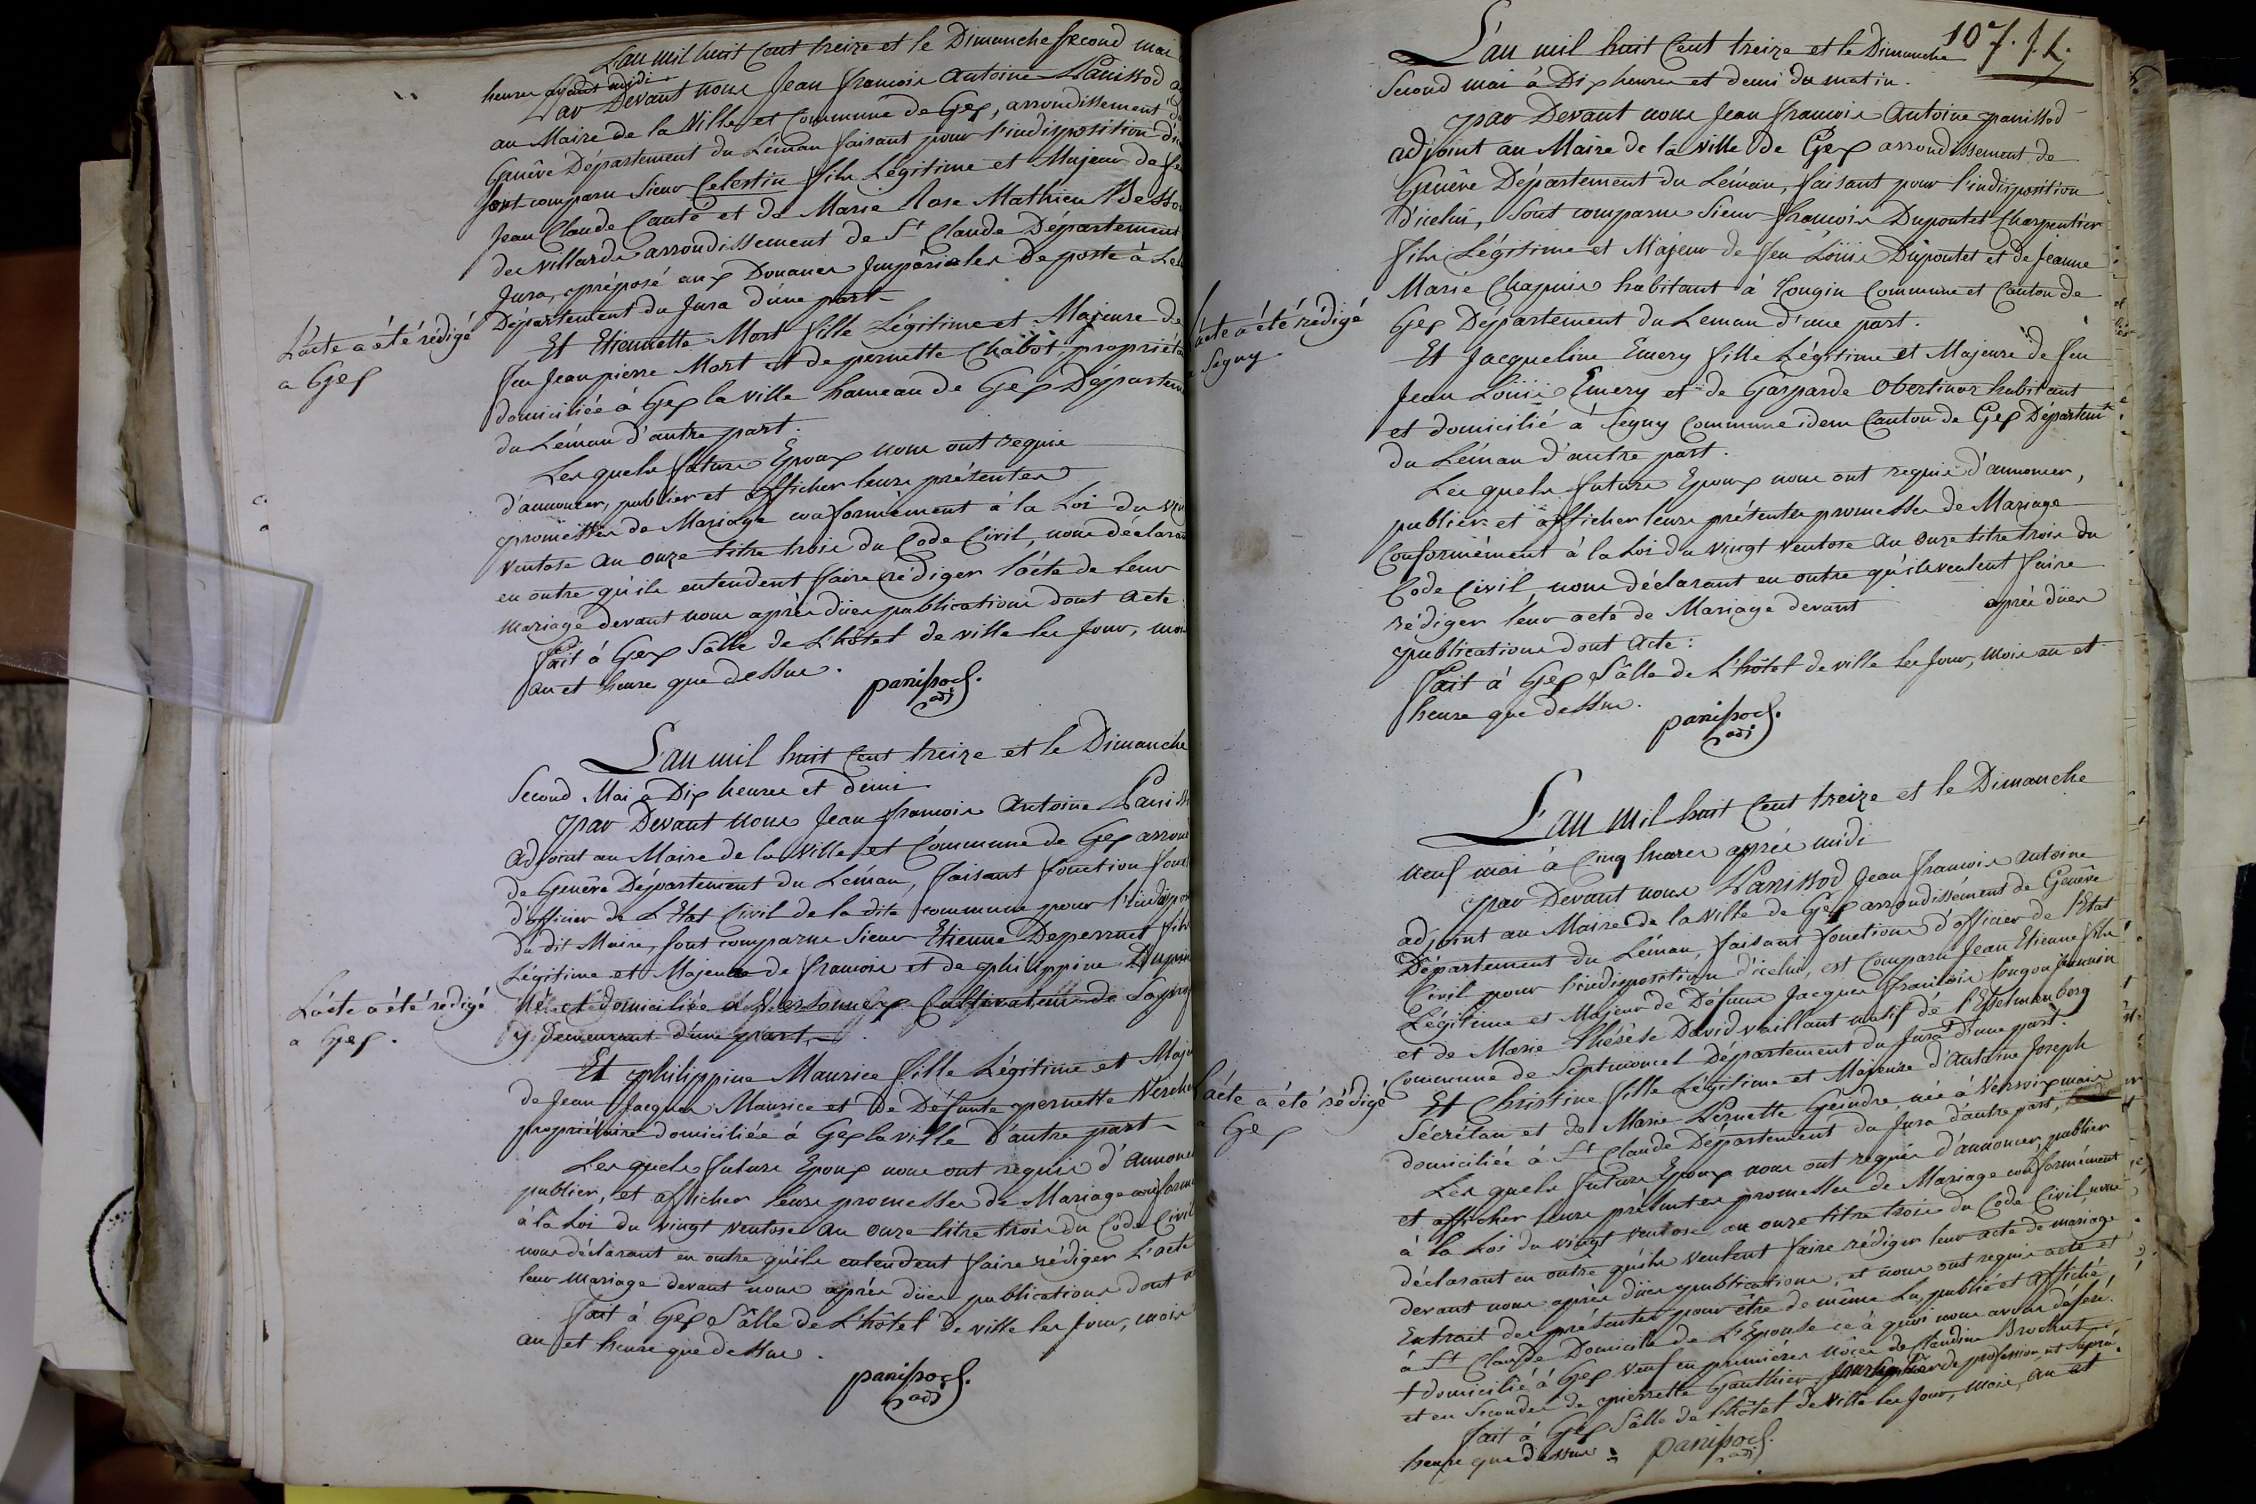 L'an mil huit Cent treize et le Dimanche second mai
heures avant midi
Par Devant nous Jean francois Antoine Panissod
au Maire de la Ville et Commune de Gex, arrondissement
Genêve Département du Léman faisant pour l'indisposition
sont comparu Sieur Celestin fils Légitime et Majeur de
Jean Claude Canté et de Marie Rose Mathieu
des villards arrondissement de St Claude Département
Jura, préposé aux Douanes Impériales De poste à
Département du Jura d'une part
Et Etiennette Mort fille Légitime et Majeure de
feu Jean pierre Mort et de pernette Chabot,
domiciliée à Gex la ville hameau de Gex
du Léman d'autre part.
Les quels futurs Epoux nous ont requis
d'annoncer, publier et afficher leurs présentes
promesses de Mariage conformément à la Loi du
ventose an onze titre trois du Code Civil, nous
en outre qu'ils entendent faire rédiger l'acte de leur
mariage devant nous après dües publications dont acte
fait à Gex Sâlle de L'hôtel de ville les Jour,
an et heure que dessus.
panissod.
adj
L'acte a été rédigé
a Gex
L'an mil huit Cent treize et le Dimanche
Second Mai à Dix heures et demi
par Devant nous Jean francois Antoine
adjoint au Maire de la Ville et Commune de Gex
de Genêve Département du Léman, faisant fonction
d'officier de L'Etat Civil de la dite commune pour
du dit Maire, sont comparu Sieur Etienne Deperraz
Légitime et Majeur de francois et de philippine
Né et Domicilié à Versonnex Cultivateur de
y demeurant d'une part,
Et philippine Maurice fille Légitime et
de Jean Jacques Maurice et De Défunte pernette
propriétaire domiciliée à Gex la ville d'autre part
Les quels futurs Epoux nous ont requis d'
publier, et afficher leurs promesses de Mariage
à la Loi du vingt ventose an onze titre trois du Code
nous déclarant en outre qu'ils entendent faire rédiger L'acte
leur mariage devant nous après dües publications dont
fait à Gex Sâlle de L'hôtel de ville les Jour, mois
an et heure que dessus.
panissod.
adj
L'acte a été rédigé
a Gex.
107. f. L.
L'an mil huit Cent treize et le Dimanche
Second mai à Dix heures et demi du matin.
par Devant nous Jean francois Antoine panissod
adjoint au Maire de la ville De Gex arrondissement de
Genêve Département du Léman, faisant pour l'indisposition
d'icelui, Sont comparu Sieur francois Dupontet Charpentier
fils Légitime et Majeur de feu Loüis Dupontet et de Jeanne
Marie Chapuis habitant à Tougin Commune et Canton de
Gex Département du Leman d'une part.
Et Jacqueline Emery fille Légitime et Majeure de feu
Jean Loüis Emery et de Gasparde habitant
et domicilié à Segny Commune idem Canton de Gex Départemt
du Léman d'autre part.
Les quels futurs Epoux nous ont requis d'annoncer,
publier et afficher leurs présentes promesses de Mariage
Conformément à la Loi du vingt ventose an onze titre trois du
Code Civil, nous déclarant en outre qu'ils veulent faire
rédiger leur acte de Mariage devant après dües
publications dont acte:
fait à Gex Sâlle de L'hôtel de ville les Jour, mois an et
heure que dessus.
panissod.
adj
acte a été rédigé
Segny
L'an mil huit Cent treize et le Dimanche
neuf mai à Cinq heures après midi
par Devant nous Panissod Jean francois Antoine
adjoint au Maire de la ville de Gex arrondissement de Genêve
Département du Léman, faisant fonctions d'officier de l'Etat
Civil pour l'indisposition d'icelui, est Comparu Jean Etienne fils
Légitime et Majeur de Défunt Jacques francois
et de Marie thérèse David vaillant natif de
Commune de Septmoncel Département du Jura † d'une part.
Et Christine fille Légitime et Majeure d'Antoine Joseph
Sécrétan et de Marie Pernette Geindre, née à Versoix mais
domiciliée à St Claude Département du Jura d'autre part,
Les quels futurs Epoux nous ont requis d'annoncer, publier
et afficher leurs présentes promesses de Mariage conformément
à la Loi du vingt ventose an onze titre trois du Code Civil, nous
déclarant en outre qu'ils veulent faire rédiger leur acte de mariage
devant nous après dües publications, et nous ont requis acte et
Extrait des présentes pour être de même Lu, publié et affiché
à St Claude Domicile de L'Epouse ce à quoi nous avons déféré.
† domicilié à Gex veuf en premieres nôces de Claudine Brochut
et en secondes de pierrette Gauthier, de profession
fait à Gex Sâlle de l'hôtel de ville les Jour, mois, an et
heure que dessus.
panissod.
adj
L'acte a été rédigé
Gex